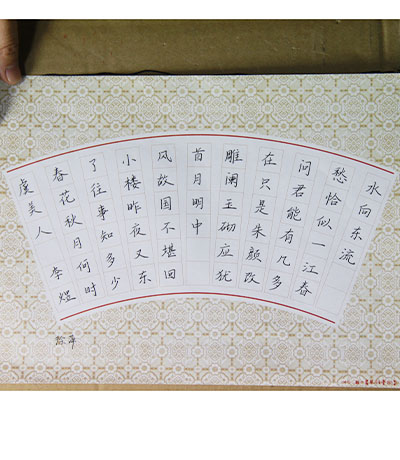 虞美人 李煜
春花秋月何时
了往事知多少
小楼昨夜又东
风故国不堪回
首月明中
雕阑玉砌应犹
在只是朱颜改
问君能有几多
愁恰似一江春
水向东流